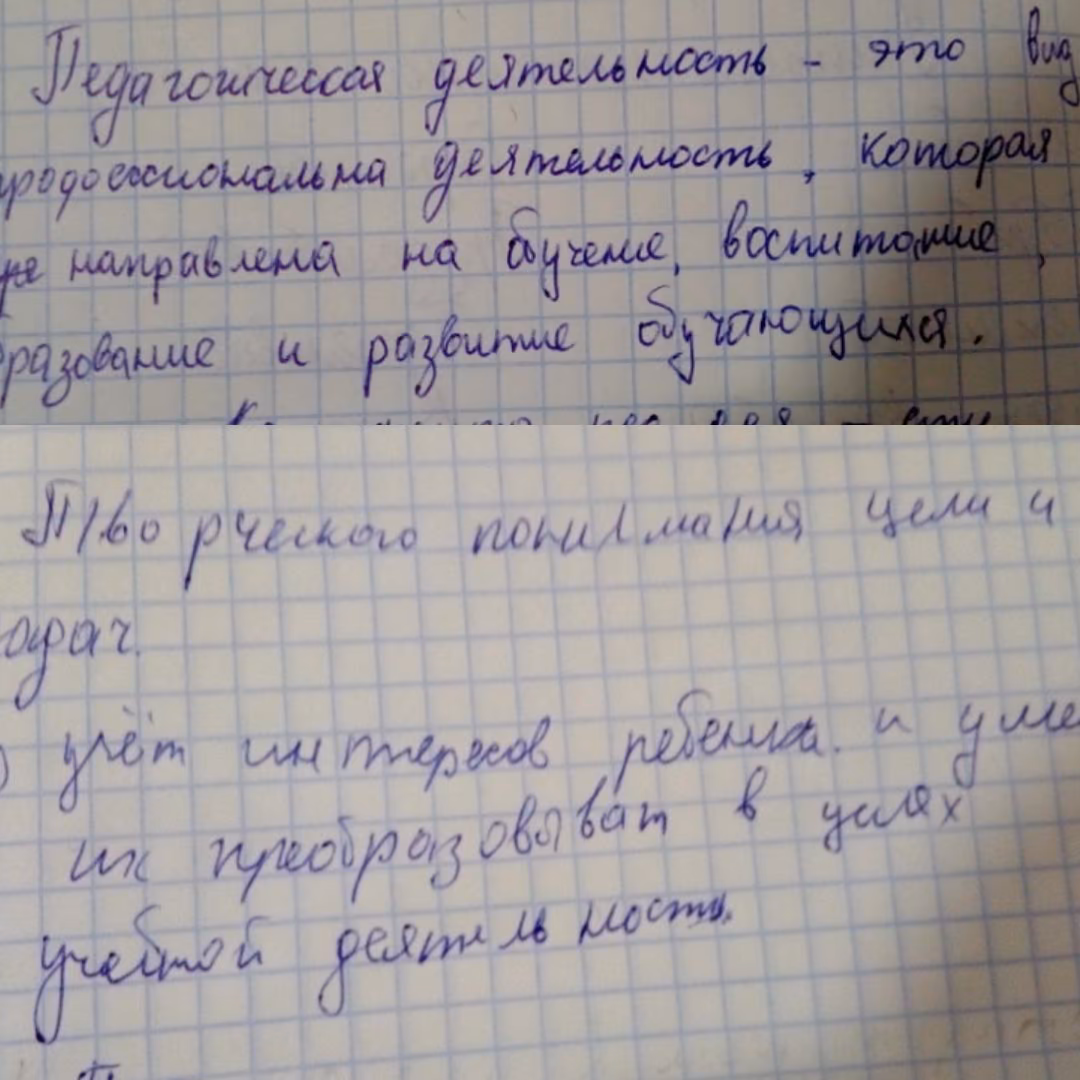 Педагогическая деятельность - это вид
продоессиональна деятельность, которая
направлена на обучение, воспитание,
разование и развитие обучающихся.
Творческого понимания цели и
адач.
учёт интересов ребенка и уме
их преобразовыват в целях
учебной деятельности.